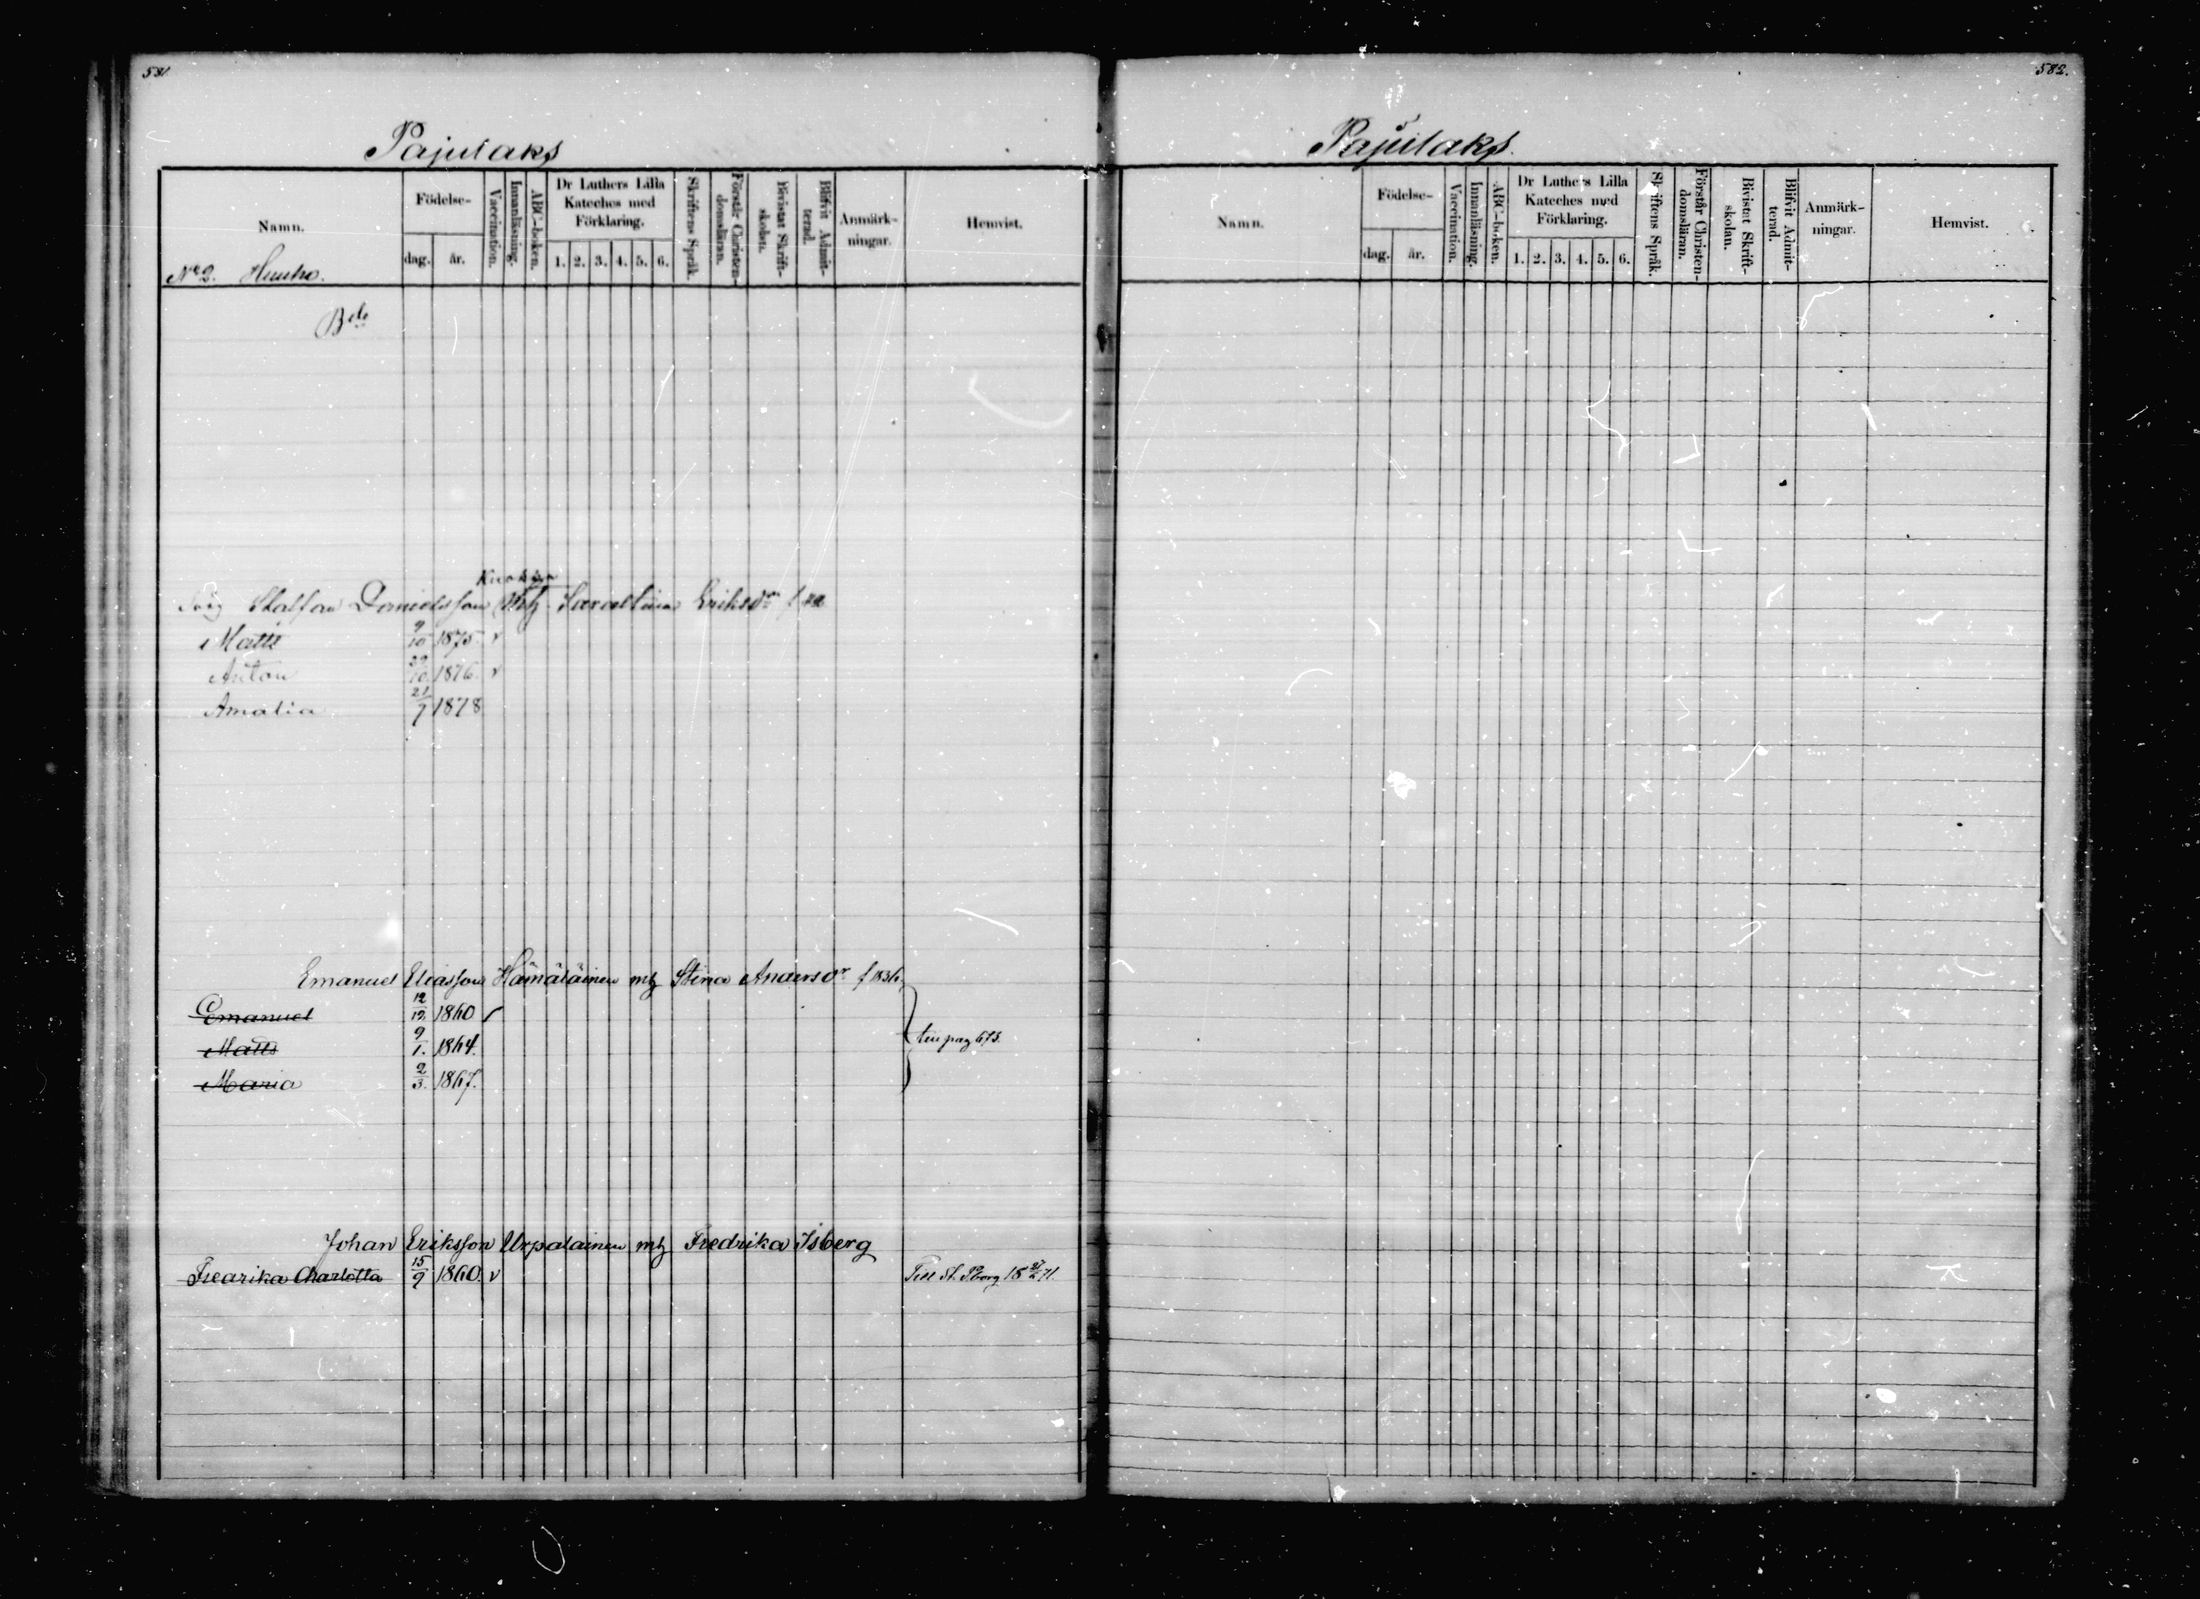 581
Pajulaks
Namn.
Födelse-
dag. år.
Vaccination.
Innanläsning.
ABC-boken.
Dr Luthers Lilla Kateches med Förklaring.
1. 2. 3. 4. 5. 6.
Skriftens Språk.
Förstår Christen-domsläran.
Bivistat Skrift-skolan.
Blifvit Admit-terad.
Anmärk-ningar.
Hemvist.
No 2.
Bde
Staffan Danielsson mhj Eriksdr f
Matts 9/10 1875. v
Anton 29/10 1876. v
Amalia 21/7 1878
Emanuel Eliasson Hämäläinen mhj Stina Andersdr f 1836.
Emanuel 12/12. 1860 v
Matts 9/1. 1864.
Maria 2/3. 1867.
till pag 673.
Johan Eriksson Urpalainen mhj Fredrika Isberg
Fredrika Charlotta 15/9 1860. v Till St. Pborg 18 71.
582.
Pajulaks.
Namn.
Födelse-
dag. år.
Vaccination.
Innanläsning.
ABC-boken.
Dr Luthers Lilla Kateches med Förklaring.
1. 2. 3. 4. 5. 6.
Skriftens Språk.
Förstår Christen-domsläran.
Bivistat Skrift-skolan.
Blifvit Admit-terad.
Anmärk-ningar.
Hemvist.